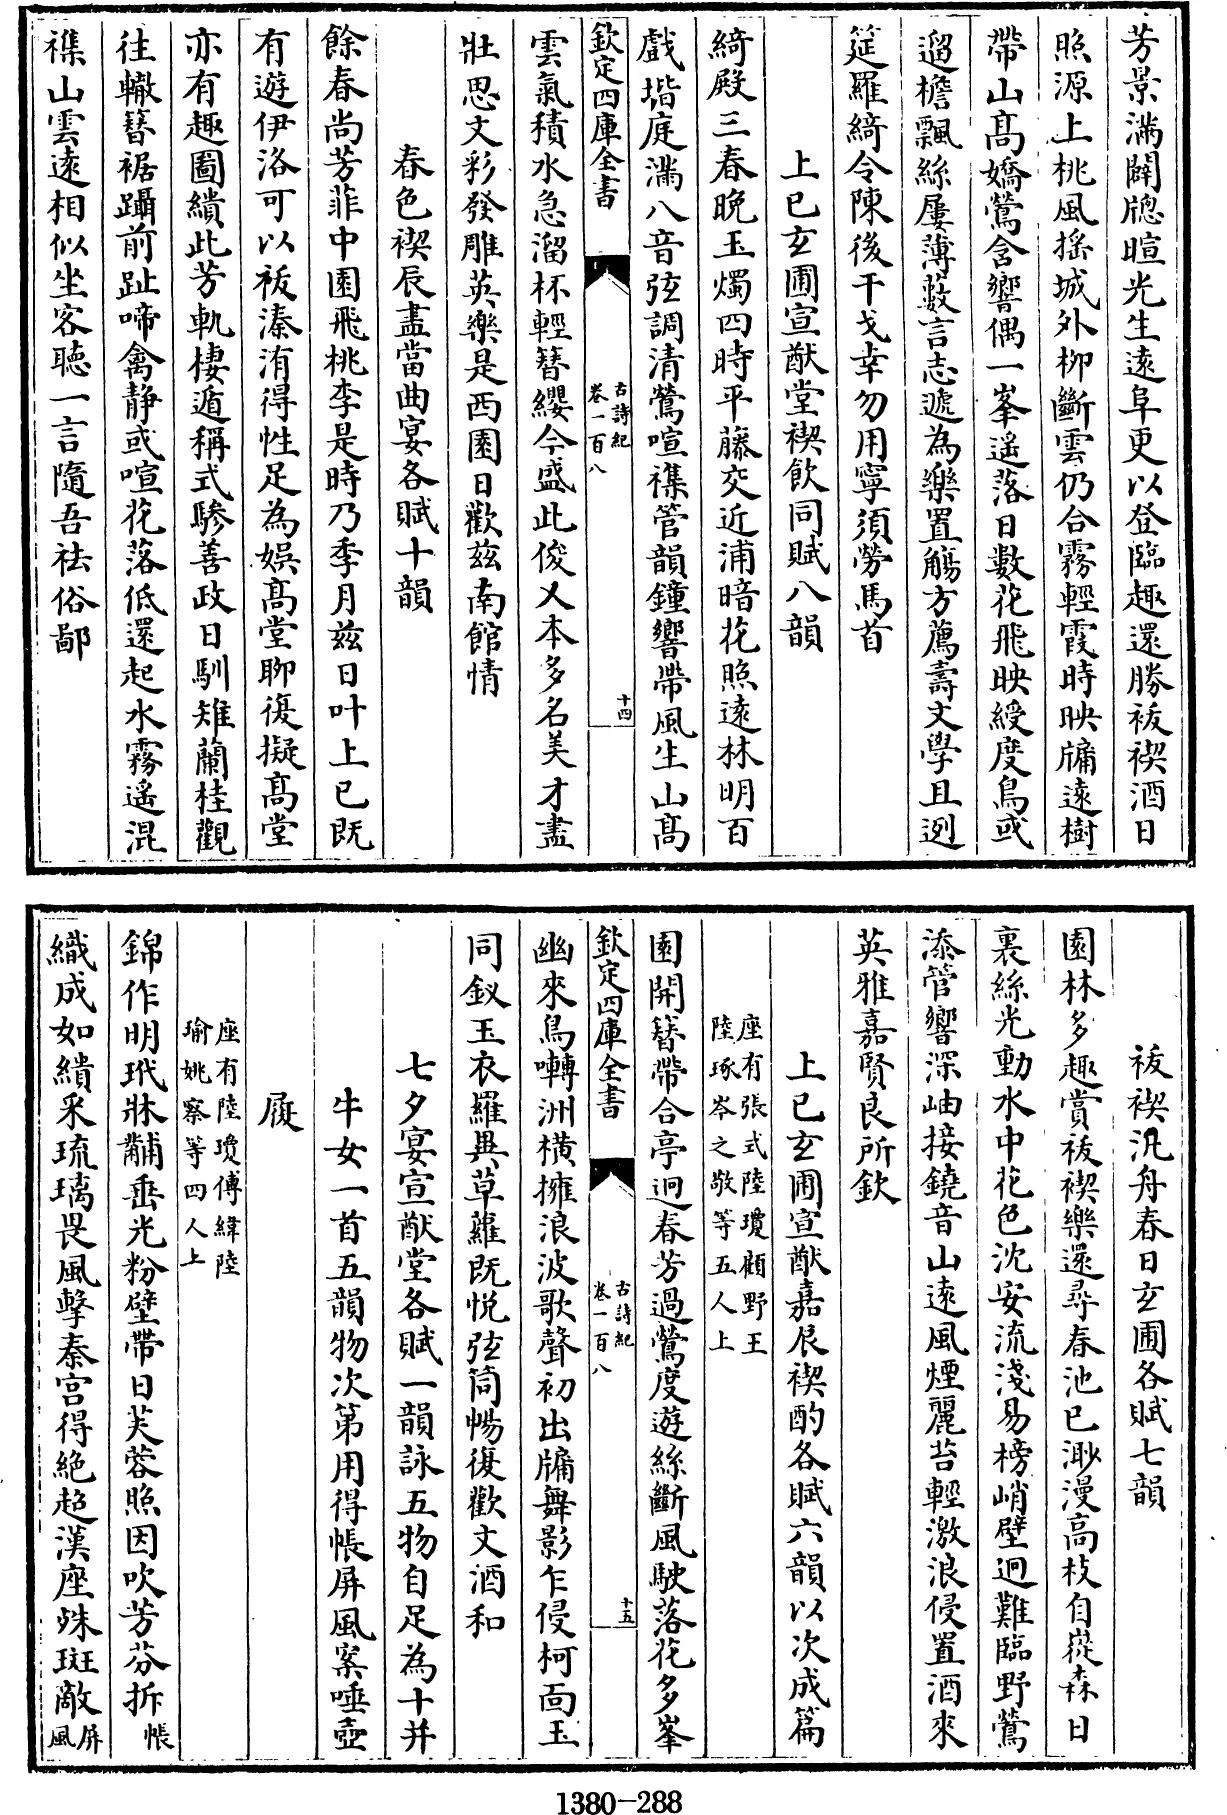 芳景滿闢牕暄光生逺阜更以登臨趣還勝祓禊酒日
照源上桃風揺城外柳斷雲仍合霧輕霞時映牖逺樹
帶山髙嬌鶯含響偶一峯遥落日數花飛映綬度鳥或
遛檐飄絲屢薄藪言志遞為樂置觴方薦壽文學且迾
筵羅綺令陳後干戈幸勿用寧須勞馬首
上巳玄圃宣猷堂禊飲同賦八韻
綺殿三春晚玉燭四時平藤交近浦暗花照逺林明百
戲堦庭滿八音弦調清鶯喧襍管韻鐘響帶風生山髙
欽定四庫全書
古詩紀
卷一百八
十四
雲氣積水急溜杯輕簪纓今盛此俊乂本多名美才盡
壯思文彩發雕英樂是西園日歡兹南館情
春色禊辰盡當曲宴各賦十韻
餘春尚芳菲中園飛桃李是時乃季月兹日叶上巳既
有遊伊洛可以祓溱洧得性足為娯髙堂聊復擬髙堂
亦有趣圖繢此芳軌棲遁稱式驂善政日馴雉蘭桂觀
往轍簪裾躡前趾啼禽静或喧花落低還起水霧遥混
襍山雲逺相似坐客聴一言隨吾祛俗鄙
祓禊汎舟春日玄圃各賦七韻
園林多趣賞祓禊樂還尋春池已渺漫高枝自蓯森日
裏絲光動水中花色沈安流淺易榜峭壁迥難臨野鶯
添管響深岫接鐃音山逺風煙麗苔輕激浪侵置酒來
英雅嘉賢良所欽
上巳玄圃宣猷嘉辰禊酌各賦六韻以次成篇
座有張式陸瓊顧野王
陸琢岑之敬等五人上
園開簪帶合亭迥春芳過鶯度遊絲斷風駛落花多峯
欽定四庫全書
古詩紀
卷一百八
十五
幽來鳥囀洲横擁浪波歌聲初出牖舞影乍侵柯面玉
同釵玉衣羅異草蘿既悅弦筒暢復歡文酒和
七夕宴宣猷堂各賦一韻詠五物自足為十并
牛女一首五韻物次第用得帳屏風案唾壺
履
座有陸瓊傅緯陸
瑜姚察等四人上
錦作明玳牀黼垂光粉壁帶日芙蓉照因吹芳芬拆帳
織成如繢采琉璃畏風擊秦宫得絶超漢座殊斑敵屏風
1380-288